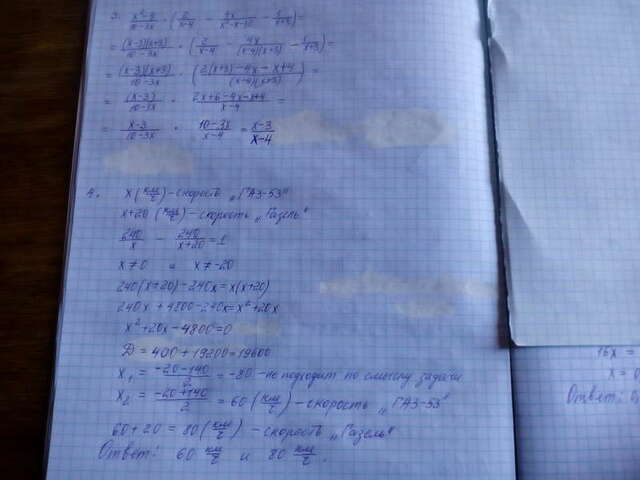 3. (x²-9)/(10-3x) · (2/(x-4) - 4x/(x²-x-12) - 1/(x+3)) =
= (x-3)(x+3)/(10-3x) · (2/(x-4) - 4x/((x-4)(x+3)) - 1/(x+3)) =
= (x-3)(x+3)/(10-3x) · (2(x+3)-4x-x+4)/((x-4)(x+3)) =
= (x-3)/(10-3x) · (2x+6-4x-x+4)/(x-4) =
= (x-3)/(10-3x) · (10-3x)/(x-4) = (x-3)/(x-4)
4. x (км/ч) - скорость „ГАЗ-53"
x+20 (км/ч) - скорость „Газель"
240/x - 240/(x+20) = 1
x≠0 и x≠-20
240(x+20)-240x=x(x+20)
240x+4800-240x=x²+20x
x²+20x-4800=0
D=400+19200=19600
x₁ = (-20-140)/2 = -80 - не подходит по смыслу задачи
x₂ = (-20+140)/2 = 60 (км/ч) - скорость „ГАЗ-53"
60+20=80 (км/ч) - скорость „Газель"
Ответ: 60 км/ч и 80 км/ч.
16x =
x = 0
Ответ: